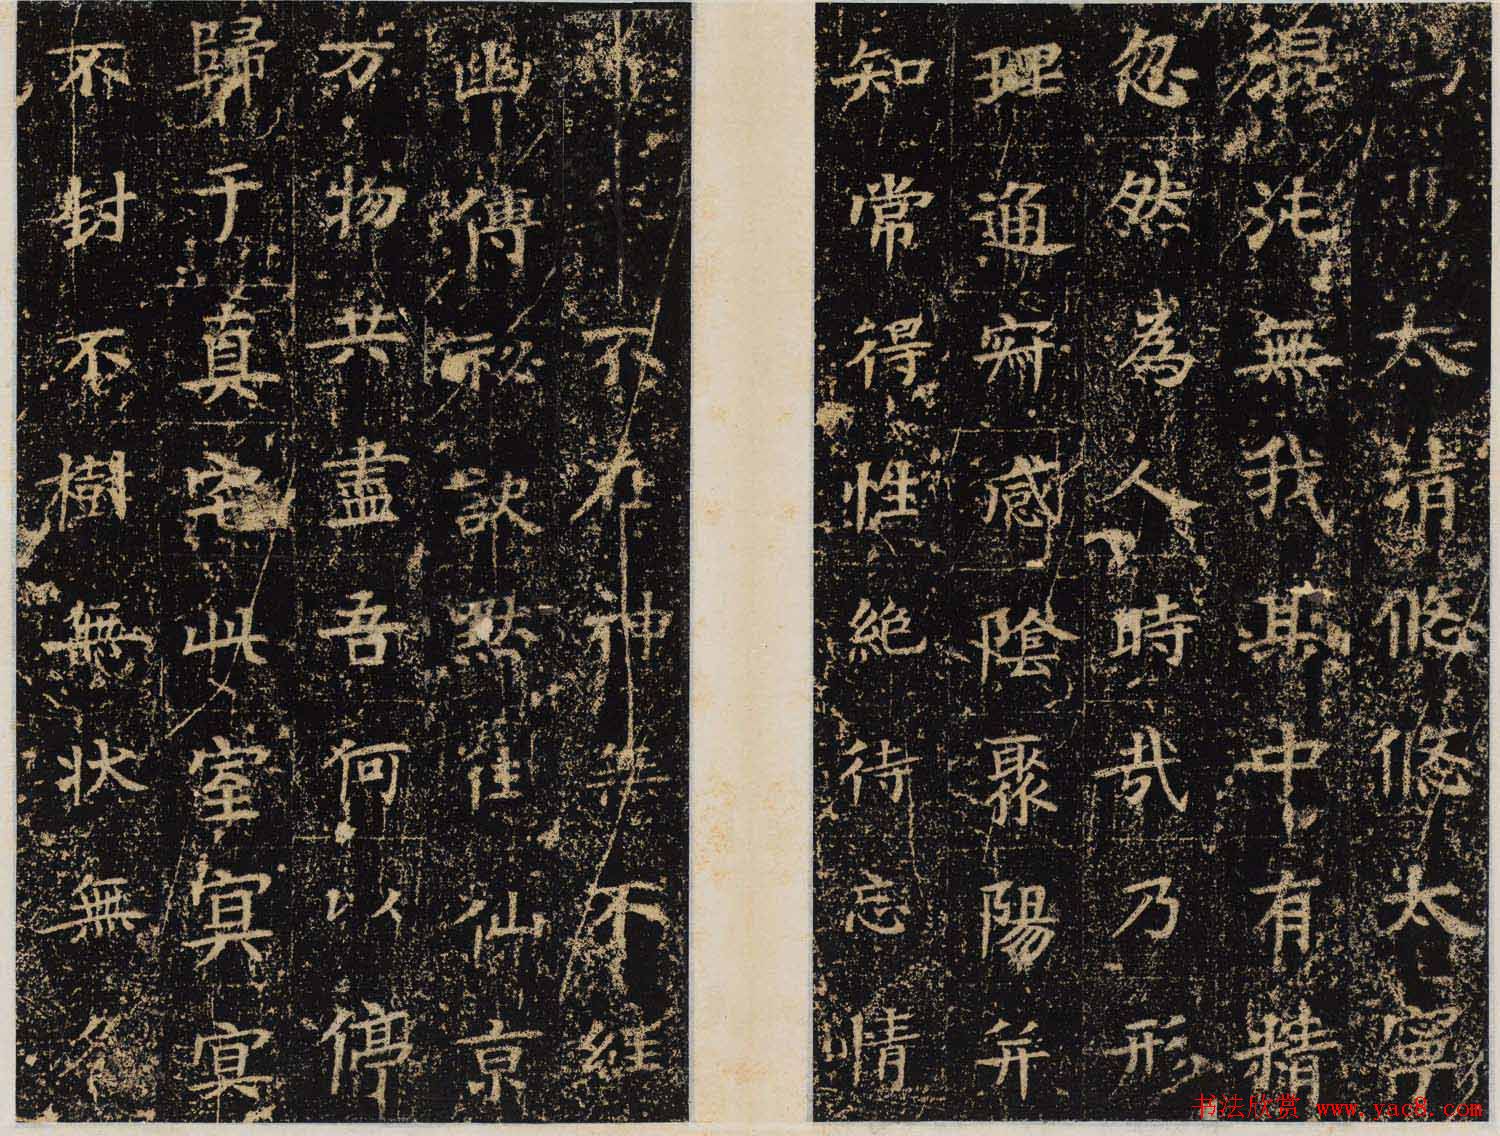 太清悠悠太寧
混沌無我其中有精
忽然為人時哉乃形
理通寂感陰聚陽并
知常得性絕待忘情
不在神不經
幽傳祕訣默往仙京
万物共盡吾何以停
歸于真宅此室冥冥
不封不樹無狀無名
书法欣赏 www.yac8.com